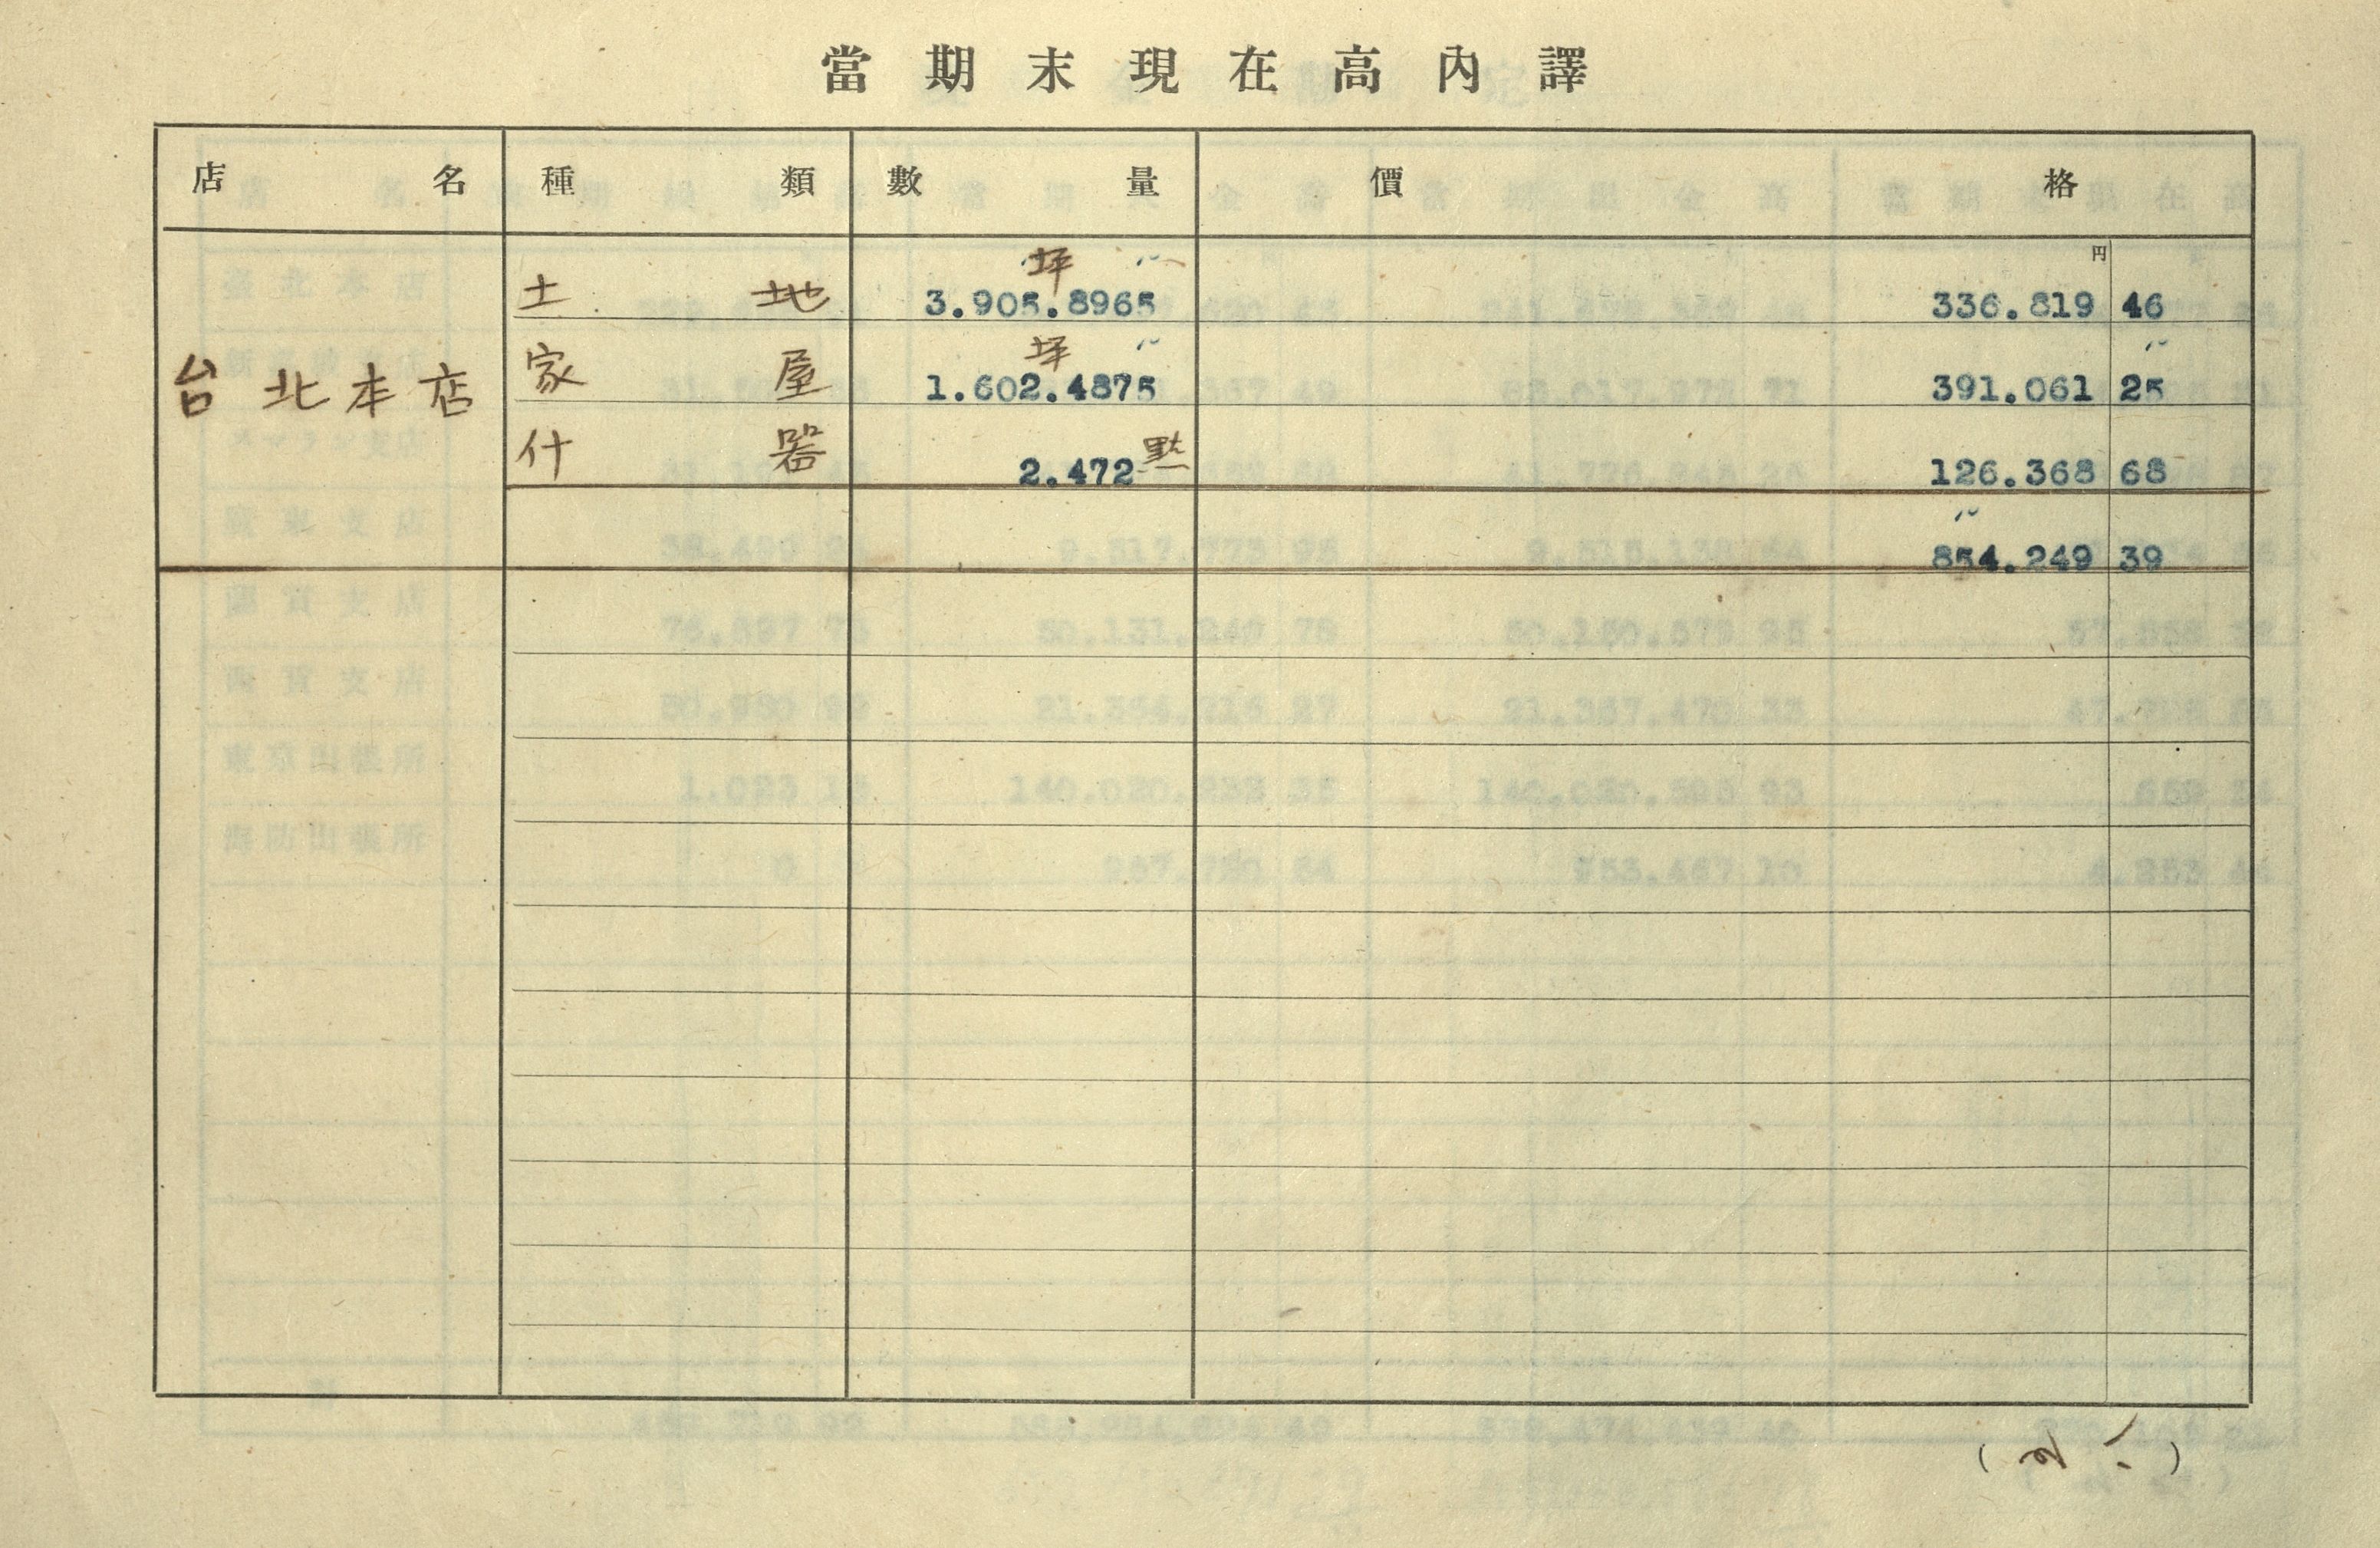 當期末現在高內譯
店名 種類 數量 價格
円
坪
土地 3.905.8965 336.819 46
坪
台北本店 家屋 1.602.4875 391.061 25
什器 2.472 點 126.368 68
854.249 39